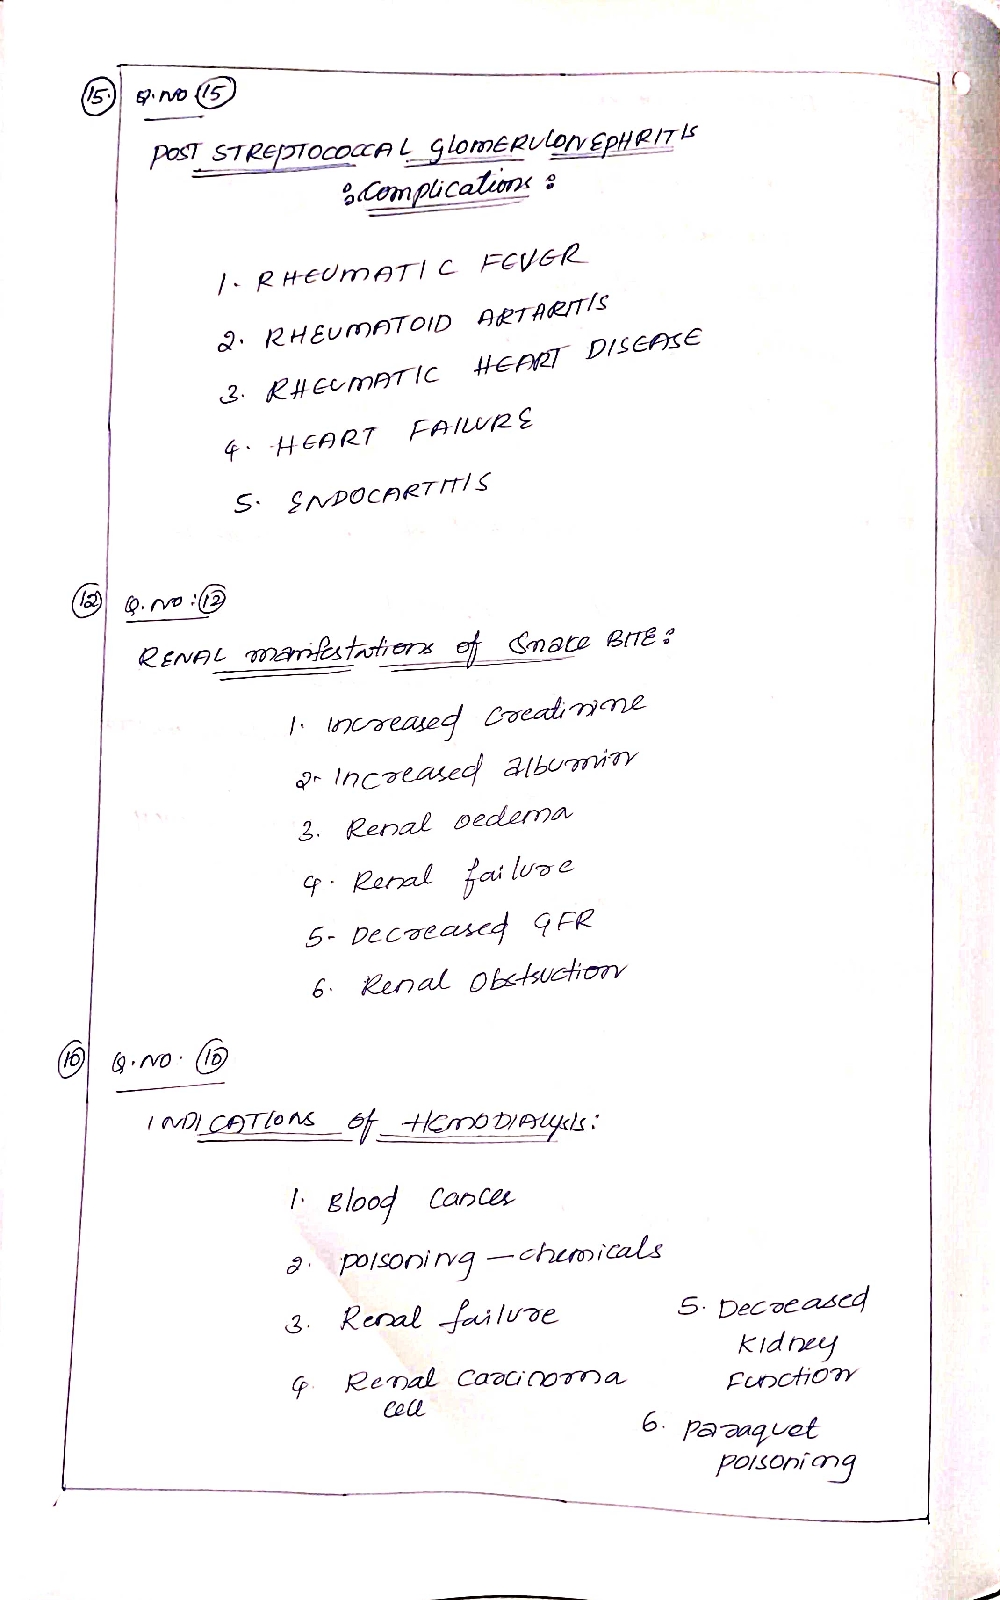 15. Q.NO 15
POST STREPTOCOCCAL GLOMERULONEPHRITIS
: Complications :
1. RHEUMATIC FEVER
2. RHEUMATOID ARTARITIS
3. RHEUMATIC HEART DISEASE
4. HEART FAILURE
5. ENDOCARTITIS
12 Q.NO : 12
RENAL manifestations of Snake BITE :
1. increased Creatinine
2. Increased albumin
3. Renal oedema
4. Renal failure
5- Decreased GFR
6. Renal Obstruction
10 Q.NO. 10
INDICATIONS of HEMODIALYSIS :
1. Blood Cancer
2. poisoning - chemicals
3. Renal failure
4. Renal Carcinoma
cell
5. Decreased
Kidney
Function
6. paraquet
poisoning